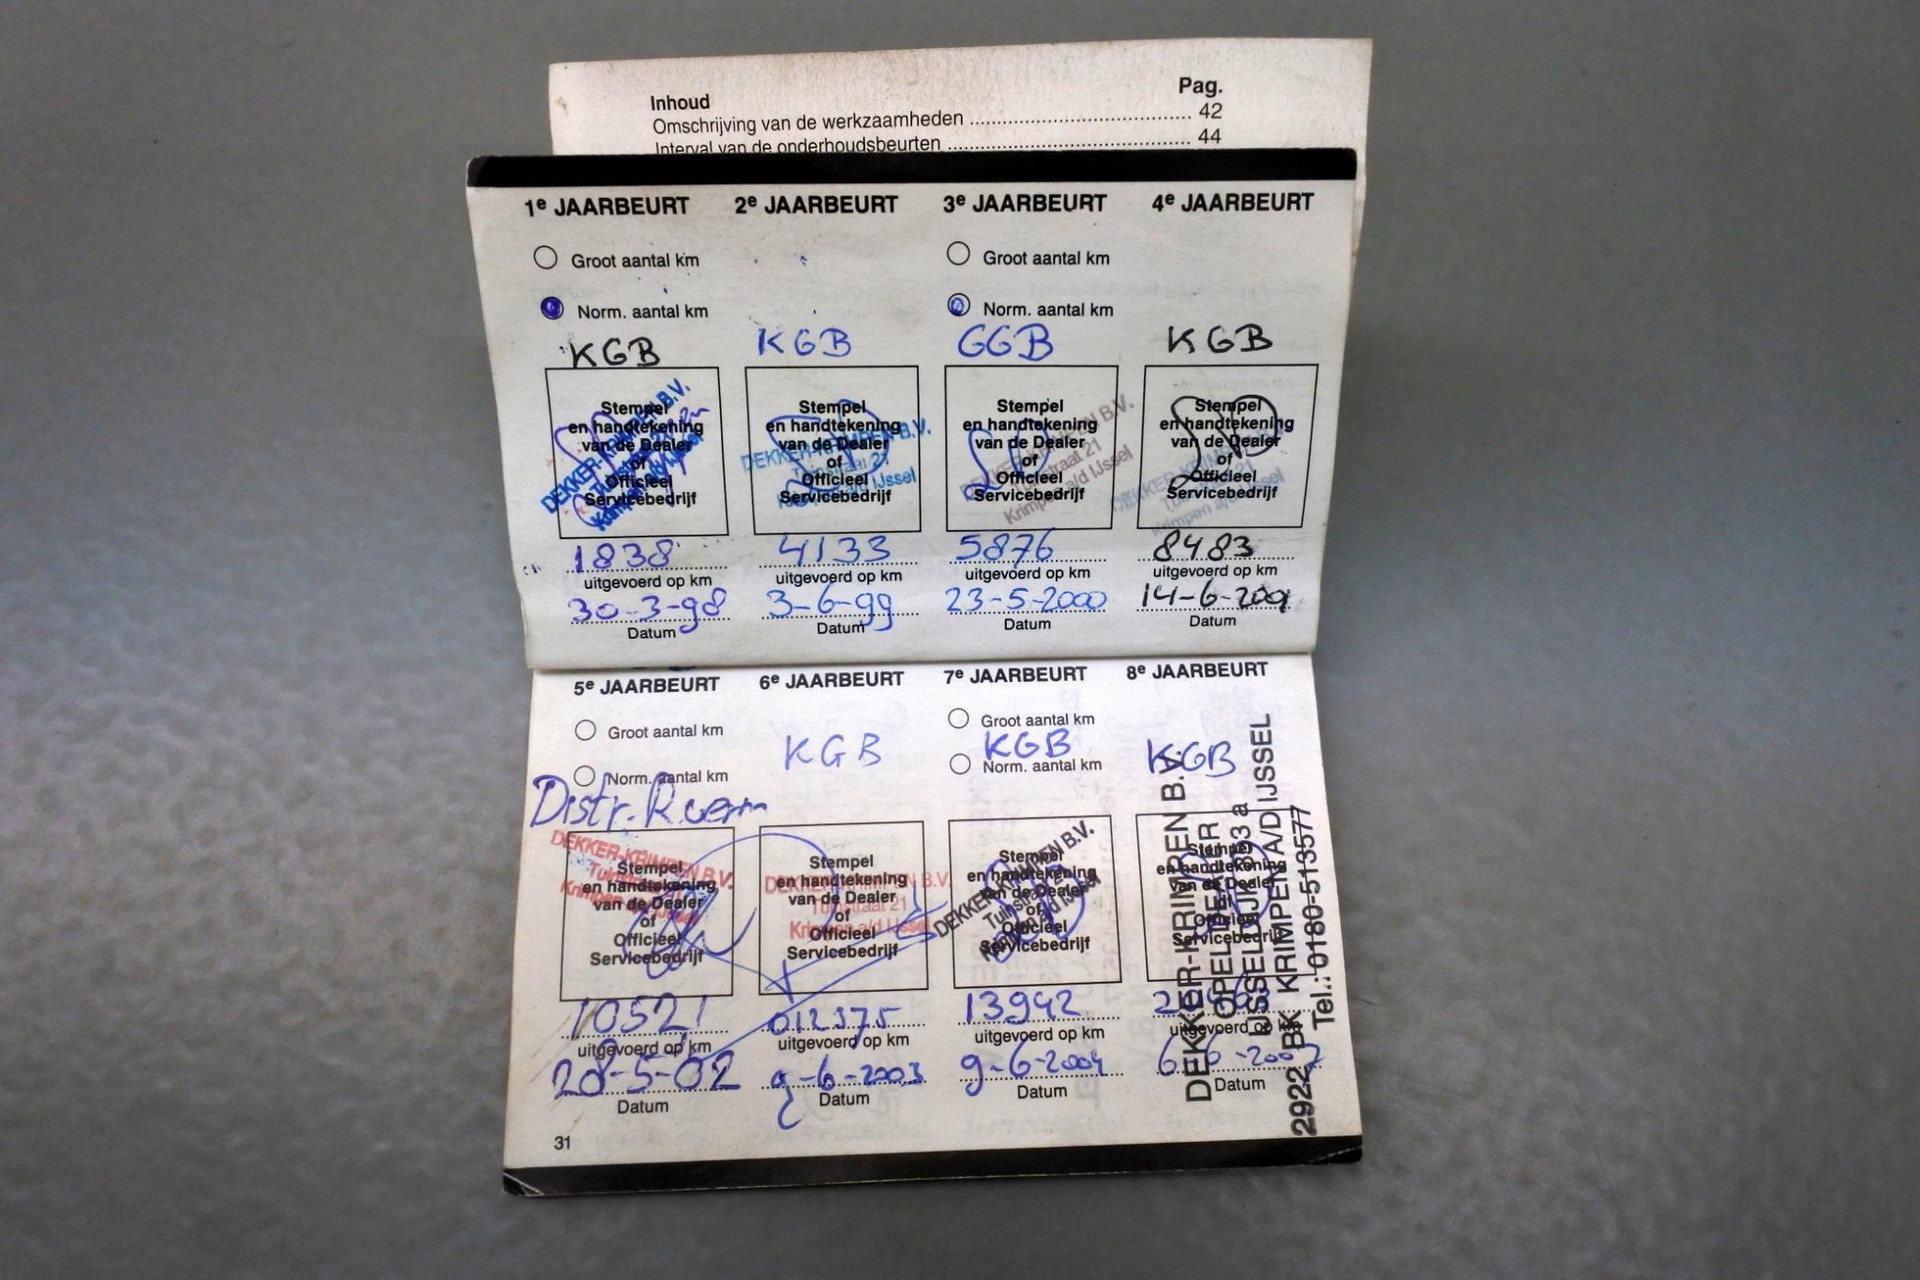 Inhoud Pag.
Omschrijving van de werkzaamheden ........ 42
Interval van de onderhoudsbeurten ........ 44
1e JAARBEURT
Groot aantal km
Norm. aantal km
KGB
Stempel
en handtekening
van de Dealer
of
Officieel
Servicebedrijf
DEKKER-KRIMPEN B.V.
1838
uitgevoerd op km
30-3-98
Datum
2e JAARBEURT
KGB
Stempel
en handtekening
van de Dealer
of
Officieel
Servicebedrijf
DEKKER-KRIMPEN B.V.
Tuinstraat 21
Krimpen a/d IJssel
4133
uitgevoerd op km
3-6-99
Datum
3e JAARBEURT
Groot aantal km
Norm. aantal km
GGB
Stempel
en handtekening
van de Dealer
of
Officieel
Servicebedrijf
DEKKER-KRIMPEN B.V.
Tuinstraat 21
Krimpen a/d IJssel
5876
uitgevoerd op km
23-5-2000
Datum
4e JAARBEURT
KGB
Stempel
en handtekening
van de Dealer
of
Officieel
Servicebedrijf
DEKKER-KRIMPEN
Krimpen a/d IJssel
8483
uitgevoerd op km
14-6-2001
Datum
5e JAARBEURT
Groot aantal km
Norm. aantal km
Distr. Riem
Stempel
en handtekening
van de Dealer
of
Officieel
Servicebedrijf
DEKKER-KRIMPEN B.V.
10521
uitgevoerd op km
28-5-02
Datum
6e JAARBEURT
KGB
Stempel
en handtekening
van de Dealer
of
Officieel
Servicebedrijf
DEKKER-KRIMPEN B.V.
Tuinstraat 21
Krimpen a/d IJssel
012375
uitgevoerd op km
2-6-2003
Datum
7e JAARBEURT
Groot aantal km
KGB
Norm. aantal km
Stempel
en handtekening
van de Dealer
of
Officieel
Servicebedrijf
DEKKER-KRIMPEN B.V.
Tuinstraat 21
13942
uitgevoerd op km
9-6-2004
Datum
8e JAARBEURT
KGB
Stempel
en handtekening
van de Dealer
of
Officieel
Servicebedrijf
uitgevoerd op km
Datum
DEKKER-KRIMPEN B.V.
OPEL DEALER
2922 BK KRIMPEN A/D IJSSEL
Tel.: 0180-513577
31